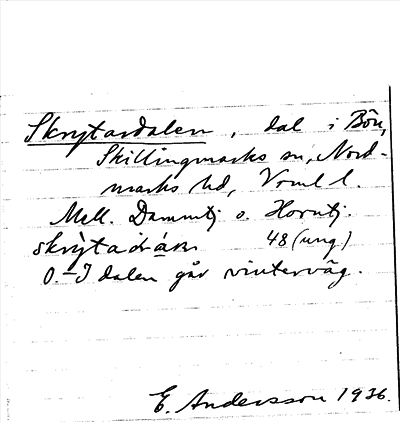 Skrytardalen, dal i Bön,
Skillingmarks sn, Nord-
marks hd, Vrml l.
Mell. Dammtj o. Horntj.
48 (ung)
O.–I dalen går vinterväg.
E. Andersson 1936.